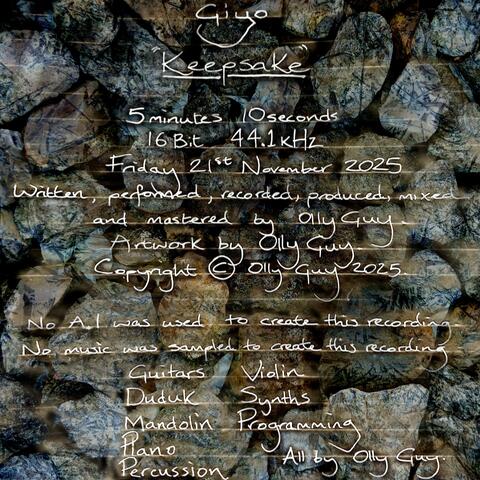 Giyo
"Keepsake"
5 minutes 10 seconds
16 Bit 44.1 kHz
Friday 21st November 2025
Written, performed, recorded, produced, mixed
and mastered by Olly Guy.
Artwork by Olly Guy.
Copyright © Olly Guy 2025.
No A.I was used to create this recording.
No music was sampled to create this recording
Guitars Violin
Duduk Synths
Mandolin Programming
Piano
Percussion All by Olly Guy.